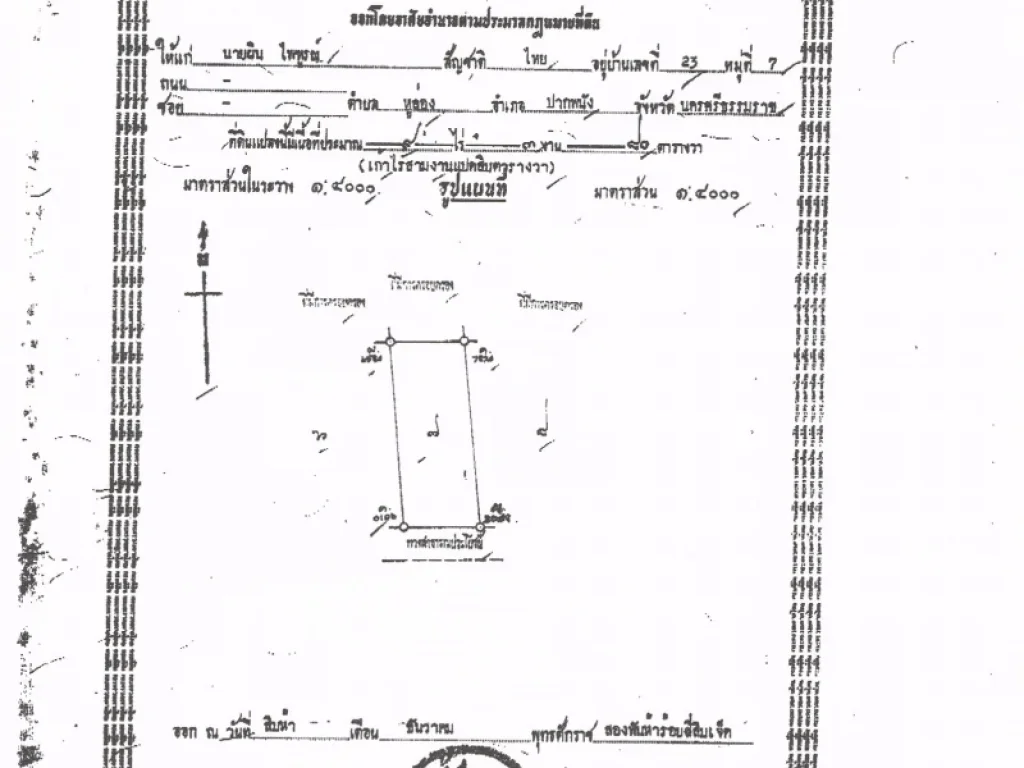 ออกโดยอาศัยอำนาจตามประมวลกฎหมายที่ดิน
ให้แก่ นายผิน ไพฑูรณ์ สัญชาติ ไทย อยู่บ้านเลขที่ 23 หมู่ที่ 7
ถนน -
ซอย - ตำบล หูล่อง อำเภอ ปากพนัง จังหวัด นครศรีธรรมราช
ที่ดินแปลงนี้มีเนื้อที่ประมาณ ๙ ไร่ ๓ งาน ๘๐ ตารางวา
(เก้าไร่สามงานแปดสิบตารางวา)
มาตราส่วนในระวาง ๑:๔๐๐๐ รูปแผนที่ มาตราส่วน ๑:๔๐๐๐
ทางสาธารณประโยชน์
ออก ณ วันที่ สิบห้า เดือน ธันวาคม พุทธศักราช สองพันห้าร้อยสี่สิบเจ็ด